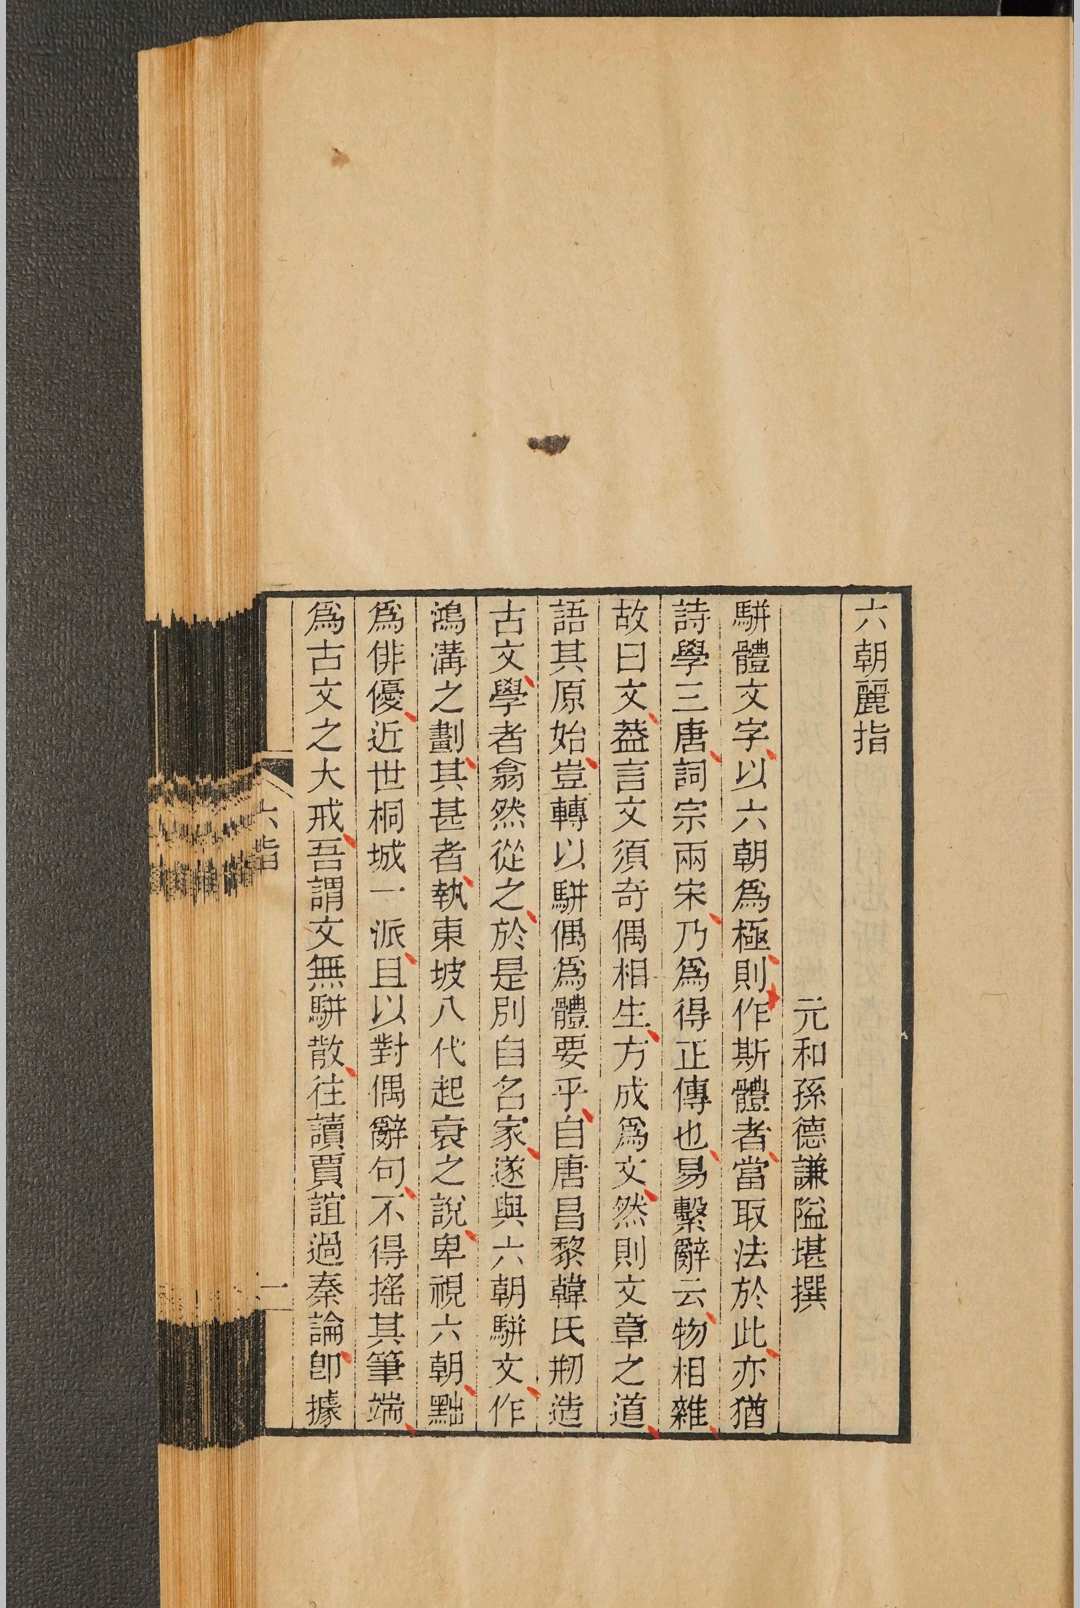 六朝麗指
元和孫德謙隘堪撰
駢體文字以六朝爲極則作斯體者當取法於此亦猶
詩學三唐詞宗兩宋乃爲得正傳也易繫辭云物相雜
故曰文葢言文須奇偶相生方成爲文然則文章之道
語其原始豈轉以駢偶爲體要乎自唐昌黎韓氏剏造
古文學者翕然從之於是別自名家遂與六朝駢文作
鴻溝之劃其甚者執東坡八代起衰之說卑視六朝黜
爲俳優近世桐城一派且以對偶辭句不得搖其筆端
爲古文之大戒吾謂文無駢散往讀賈誼過秦論卽據
六指
一